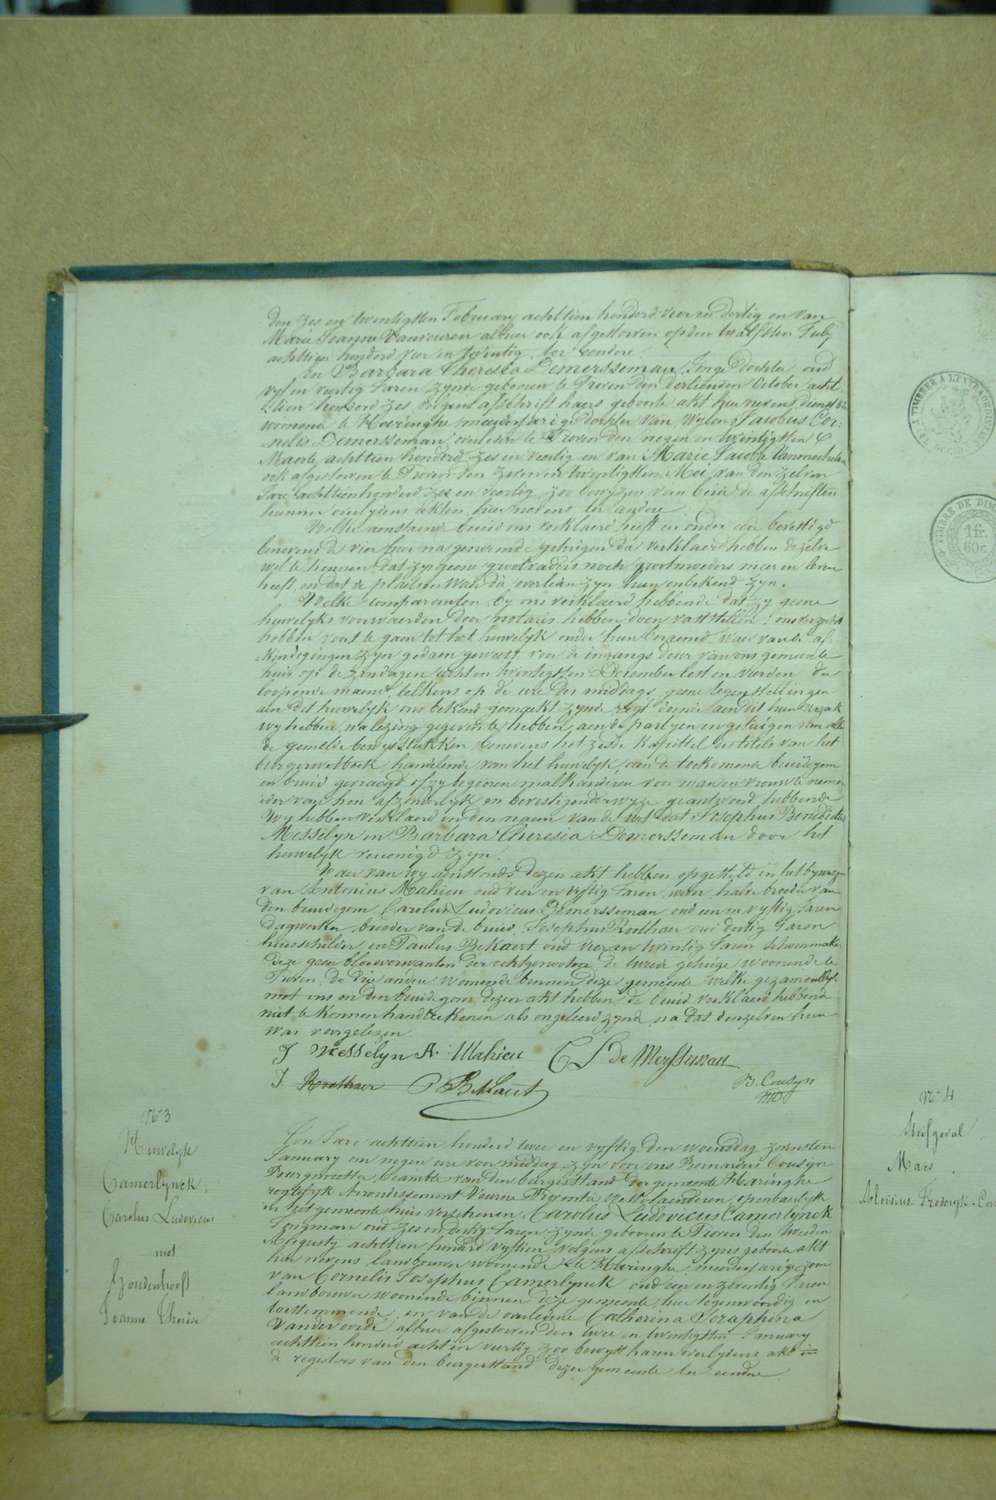 den zes en twintigsten February achttien honderd vier en dertig en van
Marie Joanna Vanvueren alhier ook afgestorven op den twaalfsten July
achttien honderd vier en twintig, ter eendere.
En Barbara Theresia Demersseman, Jonge dochter oud
vyf en veertig Jaren zynde geboren te Proven den dertienden October acht
tien honderd zes volgens afschrift haers geboorte akt hier nevens dienstb
woonende te Haeringhe meerderjarige dochter van wylen Jacobus Cor-
nelis Demersseman, overleden te Proven den negen en twintigsten
Maerte achttien honderd zes en veertig en van Marie Jacoba
ook afgestorven te Proven den zeven en twintigsten Mei van den zelven
Jare achttien honderd zes en veertig, zoo bewyzen van beide de afschriften
hunner overlydens akten, hier nevens ter andere.
Welke aenstaende bruid ons verklaerd heeft en onder eed bevestigd
benevens de vier hier na genoemde getuigen die verklaerd hebben dezelve
wel te kennen, dat zy geene grootvaders noch grootmoeders meer in leven
heeft en dat de plaetsen waer die overleden zyn hun onbekend zyn.
Welke comparanten by ons verklaerd hebbende dat zy geene
huwelyks voorwaerden door notaris hebben doen vaststellen; ons verzocht
hebben voort te gaen tot het huwelyk onder hun beraemd, waer van de af-
kondigingen zyn gedaen geweest voor de ingangs deur van ons gemeente
huis op de zondagen acht en twintigsten December lest en vierden der
loopende maend, telkens op de ure des middags, geene tegenstellingen
aen dit huwelyk ons bekend gemaekt zynde, regt doende aen dit hun verzoek
wy hebben na lezing gegeven te hebben, aen de partyen en getuigen van alle
de gemelde bewysstukken benevens het zesde kapittel des titels van het
burgerwetboek, handelende van het huwelyk, aen de toekomende bruidegom
en bruid gevraegd of zy begeeren malkanderen voor man en vrouw te nemen
ider van hen afzonderlyk en bevestigender wyze geantwoord hebbende
Wy hebben verklaerd in den naem van de wet dat Josephus Benedictus
Messelyn en Barbara Theresia Demersseman door het
huwelyk vereenigd zyn.
Waer van wy aenstonds dezen akt hebben opgesteld in het bywezen
van Antonius Mahieu oud vier en vyftig Jaren, halve broeder van
den bruidegom, Carolus Ludovicus Demersseman oud een en vyftig Jaren
dagwerker, broeder van de bruid, Josephus Roethaer oud dertig Jaren
huisschilder, en Paulus Bekaert oud vier en twintig Jaren Schoenmaker
deze geen bloedverwanten der echtgenooten, de tweede getuige woonende te
Proven, de drie andere woonende binnen deze gemeente welke gezamentlyk
met ons en den bruidegom dezen akt hebben de bruid verklaerd hebbende
niet te konnen handteekenen als ongeleerd zynde, na dat dezelven hun
was voorgelezen.
J Messelyn A. Mahieu C L De Meersseman
J. Roethaer P Bekaert B. Cousyn
N° 3
Huwelyk
Camerlynck
Carolus Ludovicus
met
Joanne Therese
Ten Jare achttien honderd twee en vyftig den woensdag
January om negen ure voor middag zyn voor ons Bernardus Cousyn
Burgmeester, beambte van den burgerstand der gemeente Haringhe
regterlyk Arrondissement Veurne, Provintie West-vlaenderen, openbaerlyk
in het gemeente huis verschenen, Carolus Ludovicus Camerlynck
Jongman oud zes en dertig Jaren zynde geboren te Proven den tweeden
Augusty achttien honderd vyftien volgens afschrift zyns geboorte akt
hier nevens landbouwer woonende te Haringhe, meerderjarige zoon
van Cornelis Josephus Camerlynck oud een en zeventig Jaren
landbouwer woonende binnen deze gemeente, hier tegenwoordig en
toestemmende, en van de overledene Catherina Seraphina
Vandevoorde alhier afgestorven den twee en twintigsten January
achttien honderd acht en veertig zoo bewyst haren overlydens akt in
de registers van den burgerstand dezer gemeente ter eendere.
N° 4
Sterfgeval
Mars
TIMBRE DE DIM
1 fr.
60 c.